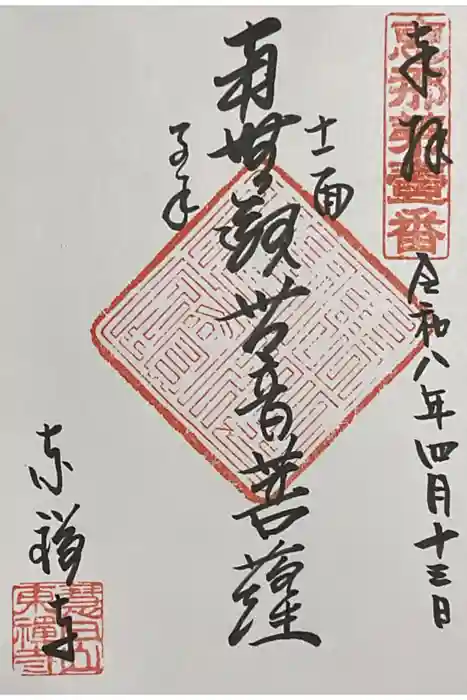 奉拝
恵那第壹番
令和八年四月十三日
十一面
南無観世音菩薩
千手
東禅寺
東禅寺